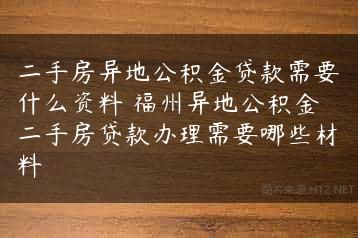 二手房异地公积金贷款需要
什么资料 福州异地公积金
二手房贷款办理需要哪些材
料
图片来源 H12.NET